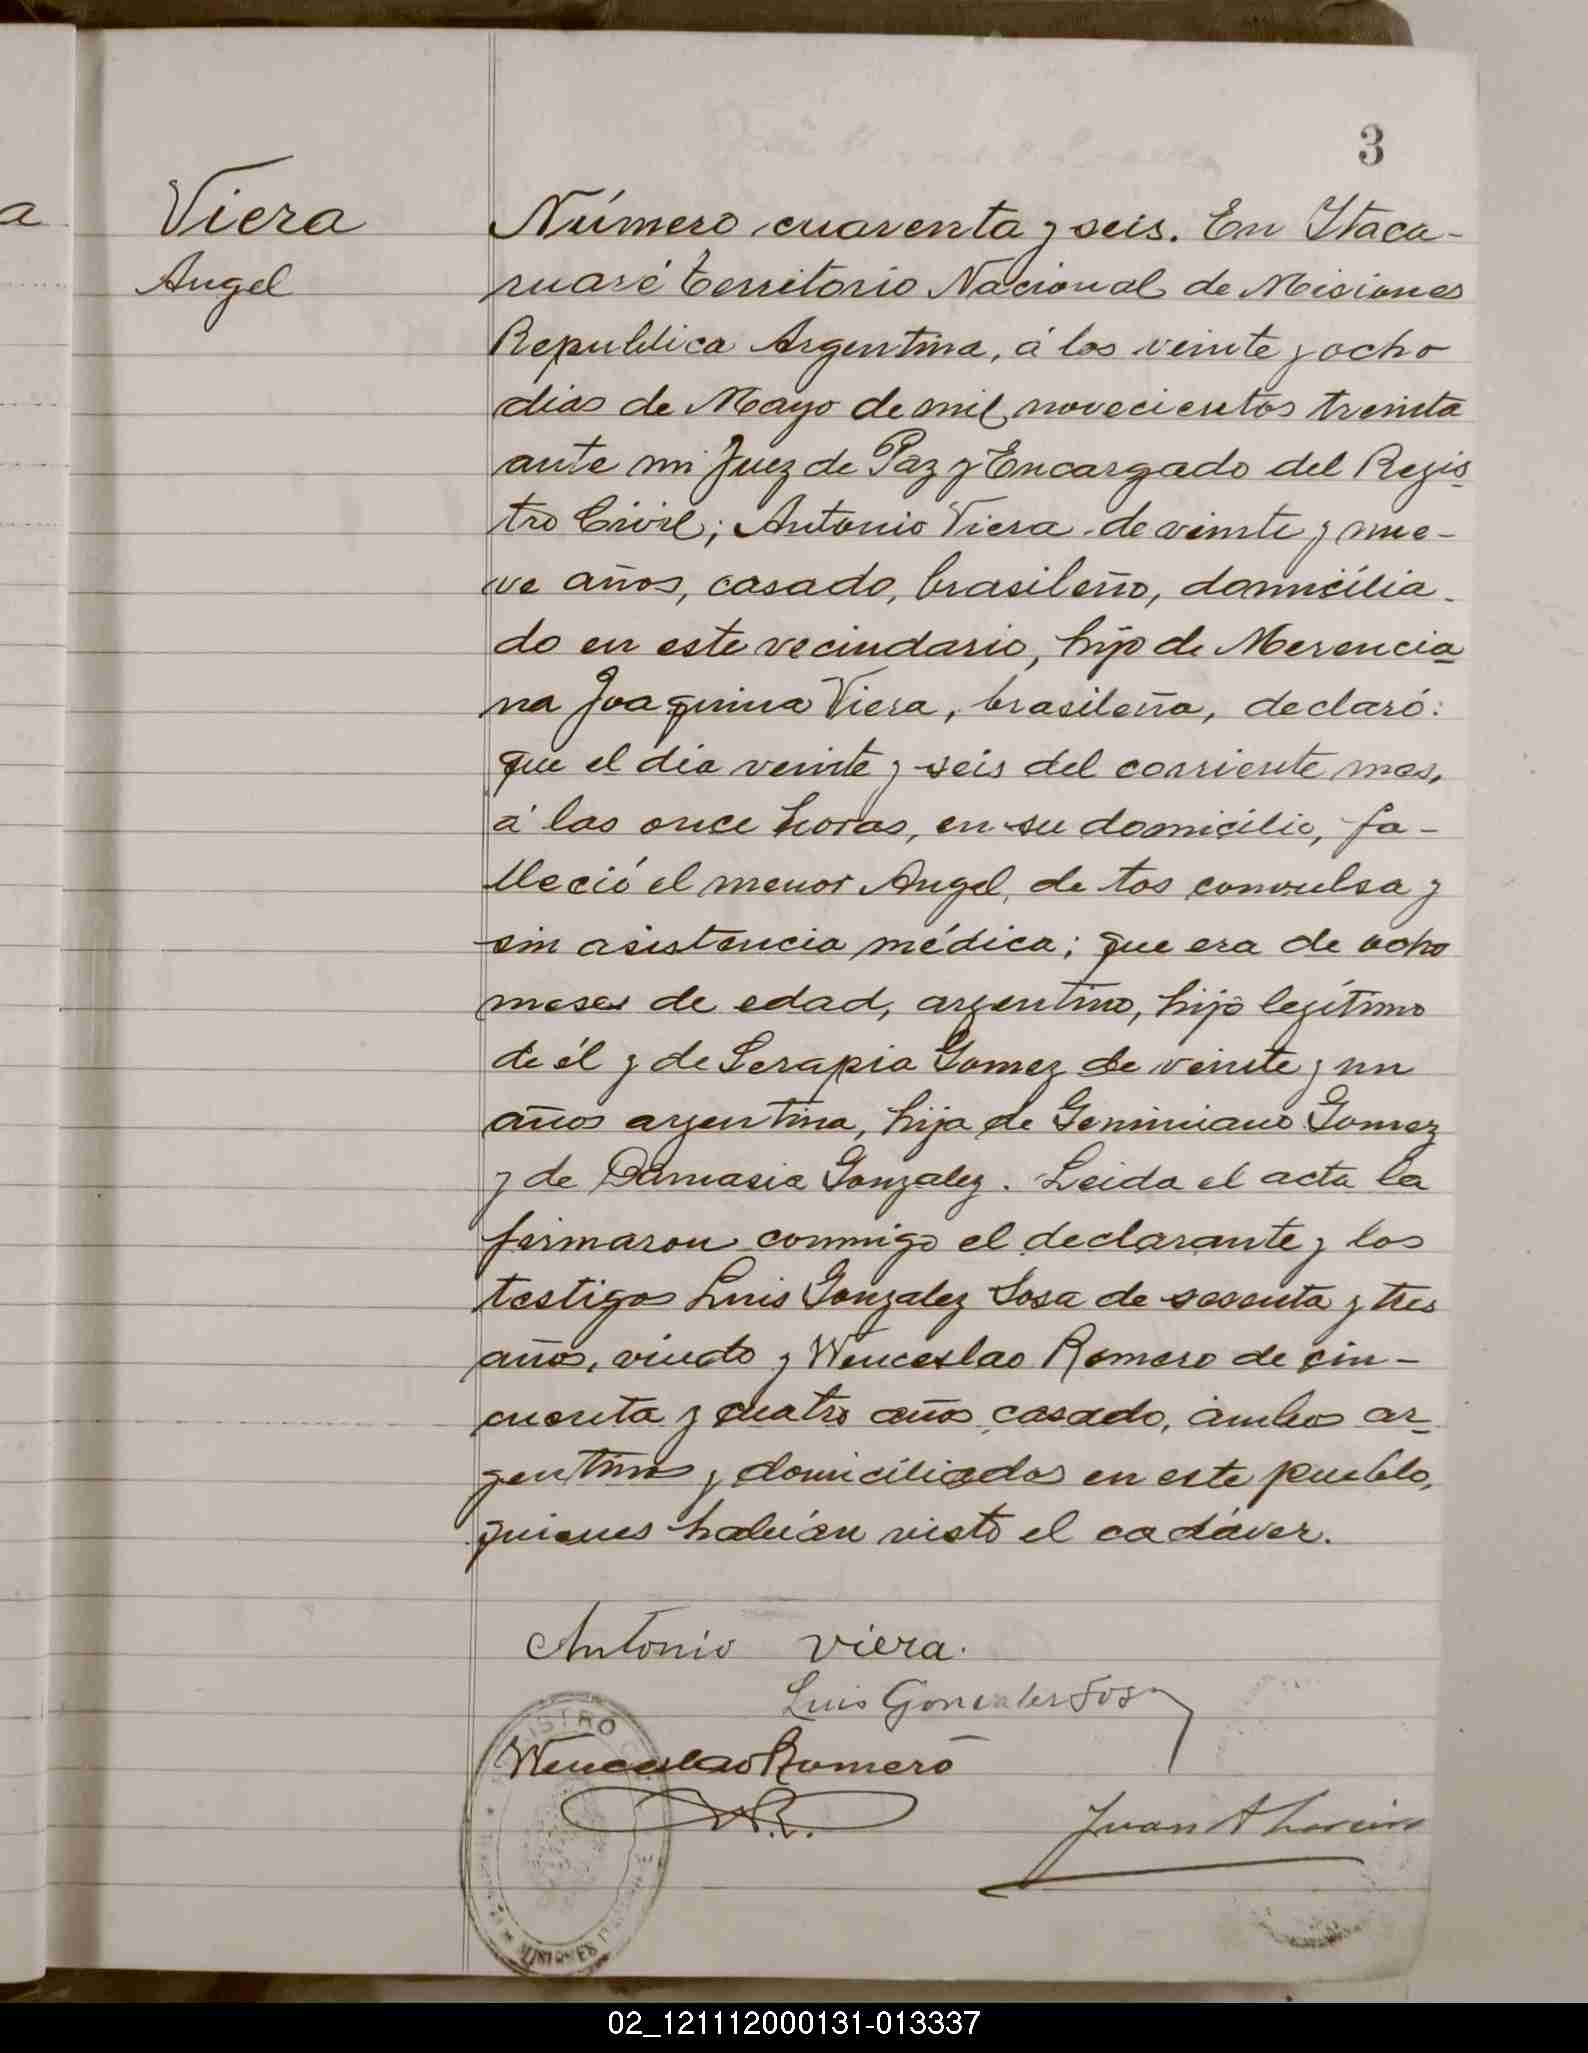 3
Viera
Angel
Número cuarenta y seis. En Itaca-
ruaré territorio Nacional de Misiones
Republica Argentina, á los veinte y ocho
dias de Mayo de mil novecientos treinta
ante mi Juez de Paz y Encargado del Regis-
tro Civil; Antonio Viera de veinte y nue-
ve años, casado, brasileño, domicilia-
do en este vecindario, hijo de Merencia-
na Joaquina Viera, brasileña, declaró:
que el dia veinte y seis del corriente mes,
á las once horas, en su domicilio, fa-
lleció el menor Angel, de tos convulsa y
sin asistencia médica; que era de ocho
meses de edad, argentino, hijo legítimo
de él y de Serapia Gomez de veinte y un
años argentina, hija de Geminiano Gomez
y de Damasia Gonzalez. Leida el acta la
firmaron conmigo el declarante y los
testigos Luis Gonzalez Sosa de sesenta y tres
años, viudo y Wenceslao Romero de cin-
cuenta y cuatro años casado, ámbos ar-
gentinos y domiciliados en este pueblo,
quienes habían visto el cadáver.
Antonio viera.
Luis Gonzalez Sosa
Wenceslao Romero
W.R.
Juan A
REGISTRO
MISIONES
02_121112000131-013337